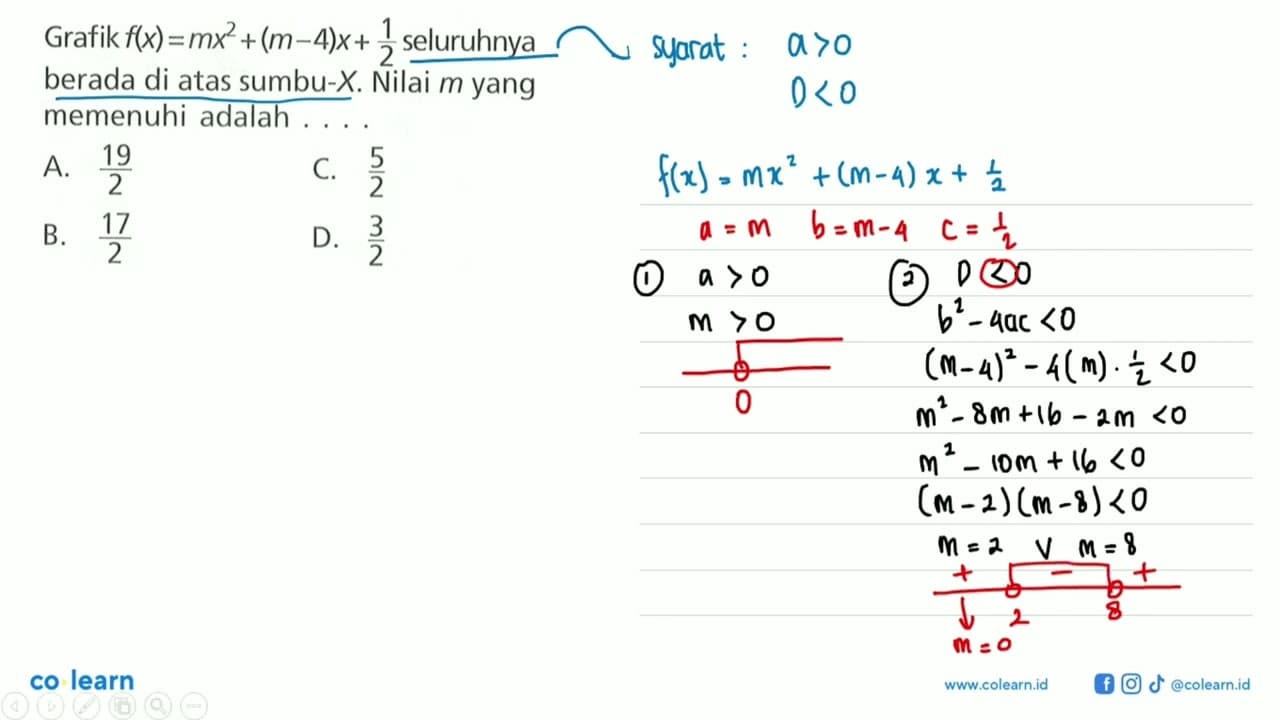 Grafik f(x) = mx² + (m − 4)x + 1/2 seluruhnya
berada di atas sumbu-X. Nilai m yang
memenuhi adalah . . . .
A. 19/2 C. 5/2
B. 17/2 D. 3/2
syarat : a > 0
D < 0
f(x) = mx² + (m − 4) x + 1/2
a = m b = m − 4 c = 1/2
① a > 0
m > 0
0
② D < 0
b² − 4ac < 0
(m − 4)² − 4(m) . 1/2 < 0
m² − 8m + 16 − 2m < 0
m² − 10m + 16 < 0
(m − 2)(m − 8) < 0
m = 2 V m = 8
+ − +
2 8
m = 0
co learn
www.colearn.id @colearn.id